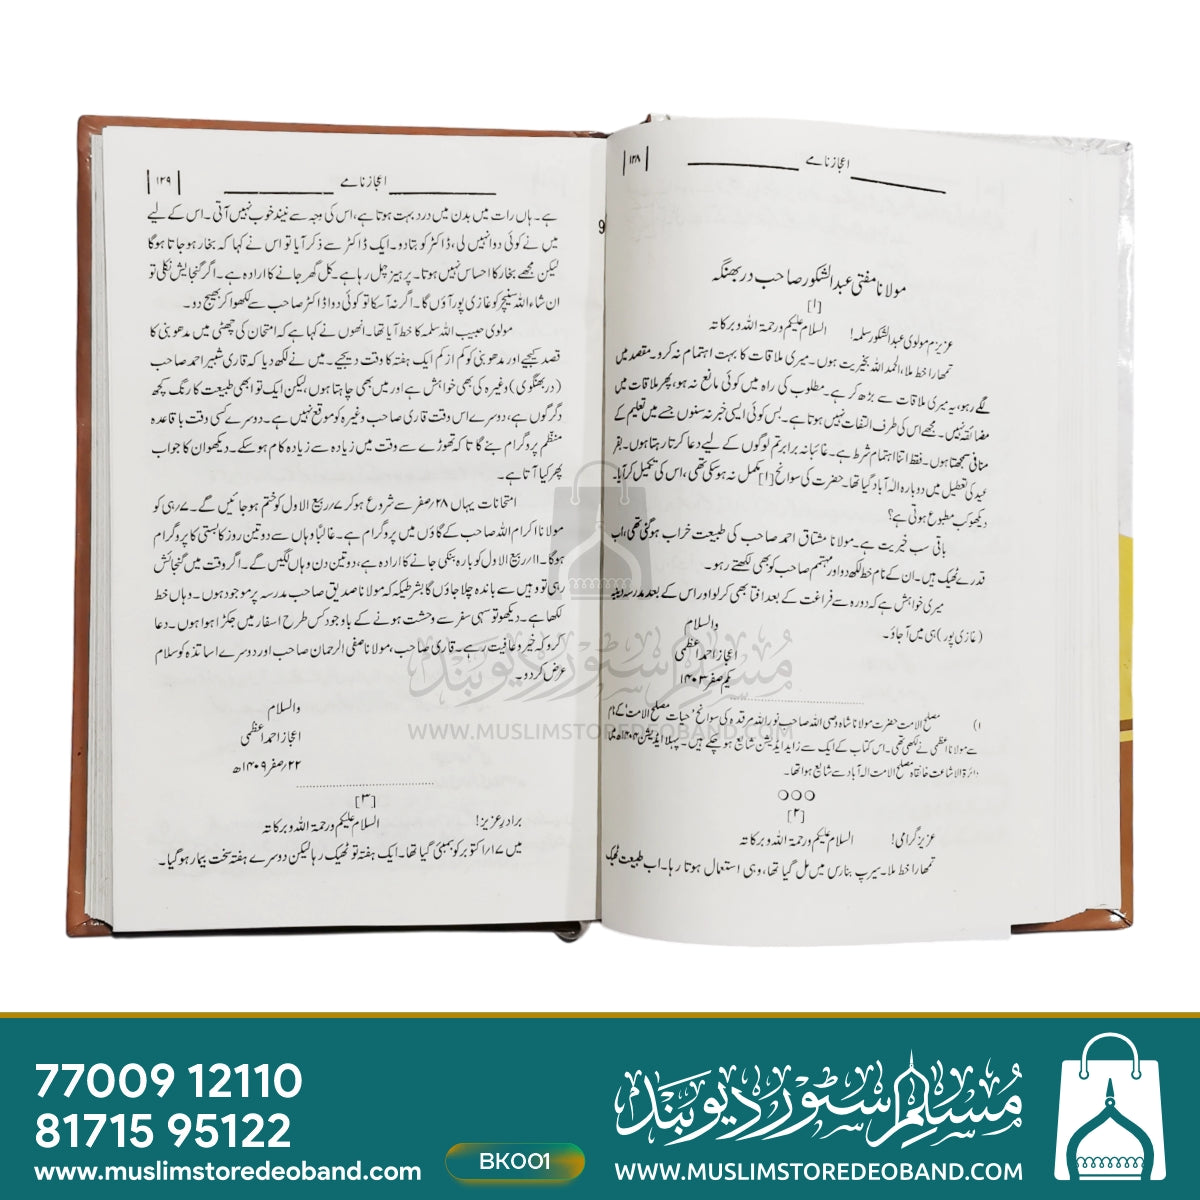 اعجاز نامے
۱۲۸
مولانا مفتی عبد الشکور صاحب دربھنگہ
[۱]
عزیزم مولوی عبد الشکور سلمہ! السلام علیکم ورحمۃ اللہ وبرکاتہ
تمہارا خط ملا، الحمد للہ بخیریت ہوں۔ میری ملاقات کا بہت اہتمام نہ کرو۔ مقصد میں
لگے رہو، یہ میری ملاقات سے بڑھ کر ہے۔ مطلوب کی راہ میں کوئی مانع نہ ہو، پھر ملاقات میں
مضائقہ نہیں۔ مجھے اس کی طرف التفات نہیں ہوتا ہے۔ بس کوئی ایسی خبر نہ سنوں جسے میں تعلیم کے
منافی سمجھتا ہوں۔ فقط اتنا اہتمام شرط ہے۔ غائبانہ برابر تم لوگوں کے لیے دعا کرتا رہتا ہوں۔ بقر
عید کی تعطیل میں دوبارہ الٰہ آباد گیا تھا۔ حضرت کی سوانح [۱] مکمل نہ ہو سکی تھی، اس کی تکمیل کر آیا۔
دیکھو کب مطبوع ہوتی ہے؟
باقی سب خیریت ہے۔ مولانا مشتاق احمد صاحب کی طبیعت خراب ہو گئی تھی، اب
قدرے ٹھیک ہیں۔ ان کے نام خط لکھ دو اور مہتمم صاحب کو بھی لکھتے رہو۔
میری خواہش ہے کہ دورہ سے فراغت کے بعد افتا بھی کر لو اور اس کے بعد مدرسہ دینیہ
(غازی پور) ہی میں آ جاؤ۔
والسلام
اعجاز احمد اعظمی
یکم صفر ۱۴۰۳
۱) مصلح الامت حضرت مولانا شاہ وصی اللہ صاحب نور اللہ مرقدہ کی سوانح 'حیات مصلح الامت' کے نام
سے مولانا اعظمی نے لکھی تھی۔ اس کتاب کے ایک سے زاید ایڈیشن شایع ہو چکے ہیں۔ پہلا ایڈیشن ۱۴۰۴ھ میں
دائرۃ الاشاعت خانقاہ مصلح الامت الہ آباد سے شایع ہوا تھا۔
[۲]
عزیز گرامی! السلام علیکم ورحمۃ اللہ وبرکاتہ
تمھارا خط ملا۔ سیرپ بنارس میں مل گیا تھا، وہی استعمال ہوتا رہا۔ اب طبیعت ٹھیک
اعجاز نامے
۱۲۹
ہے۔ ہاں رات میں بدن میں درد بہت ہوتا ہے، اس کی وجہ سے نیند خوب نہیں آتی۔ اس کے لیے
میں نے کوئی دوا نہیں لی، ڈاکٹر کو بتا دو۔ ایک ڈاکٹر سے ذکر آیا تو اس نے کہا کہ بخار ہو جاتا ہوگا
لیکن مجھے بخار کا احساس نہیں ہوتا۔ پرہیز چل رہا ہے۔ کل گھر جانے کا ارادہ ہے۔ اگر گنجایش نکلی تو
ان شاء اللہ سنیچر کو غازی پور آؤں گا۔ اگر نہ آ سکا تو کوئی دوا ڈاکٹر صاحب سے لکھوا کر بھیج دو۔
مولوی حبیب اللہ سلمہ کا خط آیا تھا۔ انھوں نے کہا ہے کہ امتحان کی چھٹی میں مدھوبنی کا
قصد کیجیے اور مدھوبنی کو کم از کم ایک ہفتہ کا وقت دیجیے۔ میں نے لکھ دیا کہ قاری شبیر احمد صاحب
(دربھنگوی) وغیرہ کی بھی خواہش ہے اور میں بھی چاہتا ہوں، لیکن ایک تو ابھی طبیعت کا رنگ کچھ
دگرگوں ہے، دوسرے اس وقت قاری صاحب وغیرہ کو موقع نہیں ہے۔ دوسرے کسی وقت باقاعدہ
منظم پروگرام بنے گا تاکہ تھوڑے سے وقت میں زیادہ سے زیادہ کام ہو سکے۔ دیکھو ان کا جواب
پھر کیا آتا ہے۔
امتحانات یہاں ۲۸؍صفر سے شروع ہو کر ۷؍ربیع الاول کو ختم ہو جائیں گے۔ ۷؍ہی کو
مولانا اکرام اللہ صاحب کے گاؤں میں پروگرام ہے۔ غالبًا وہاں سے دو تین روز کا بستی کا پروگرام
ہوگا۔ ۱۱؍ربیع الاول کو بارہ بنکی جانے کا ارادہ ہے، دو تین دن وہاں لگیں گے۔ اگر وقت میں گنجائش
رہی تو وہیں سے باندہ چلا جاؤں گا بشرطیکہ کہ مولانا صدیق صاحب مدرسہ پر موجود ہوں۔ وہاں خط
لکھا ہے۔ دیکھو تو سہی سفر سے وحشت ہونے کے باوجود کس طرح اسفار میں جکڑا ہوا ہوں۔ دعا
کرو کہ خیر و عافیت رہے۔ قاری صاحب، مولانا صفی الرحمان صاحب اور دوسرے اساتذہ کو سلام
عرض کر دو۔
والسلام
اعجاز احمد اعظمی
۲۲؍صفر ۱۴۰۹ھ
[۳]
برادر عزیز! السلام علیکم ورحمۃ اللہ وبرکاتہ
میں ۱۷؍اکتوبر کو بمبئی گیا تھا۔ ایک ہفتہ تو ٹھیک رہا لیکن دوسرے ہفتہ سخت بیمار ہو گیا۔
مسلم سٹور دیوبند
WWW.MUSLIMSTOREDEOBAND.COM
77009 12110
81715 95122
www.muslimstoredeoband.com
BK001
مسلم سٹور دیوبند
WWW.MUSLIMSTOREDEOBAND.COM